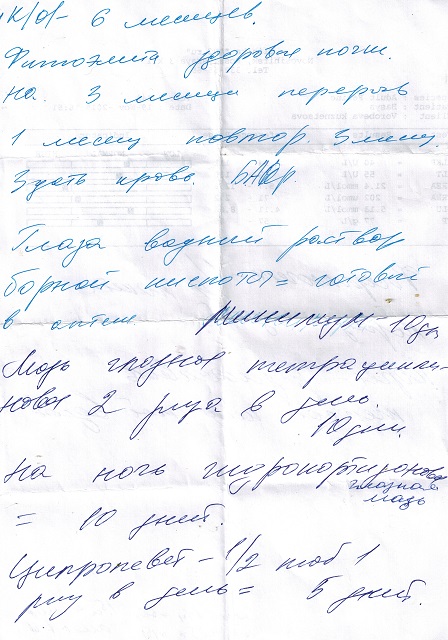 к/ф - 6 месяцев.
Фитоэлита здоровые почки.
на 3 месяца перерыв
1 месяц повтор. 3 месяц.
Сдать кровь.
Глаза водный раствор
борной кислоты = готовый
в аптеке минимум 10 дн
Мазь глазная тетрацикли-
новая 2 раза в день.
10 дни.
На ночь гидрокортизоновая
глазная
мазь
= 10 дней.
Ципровет - 1/2 таб 1
раз в день = 5 дней.